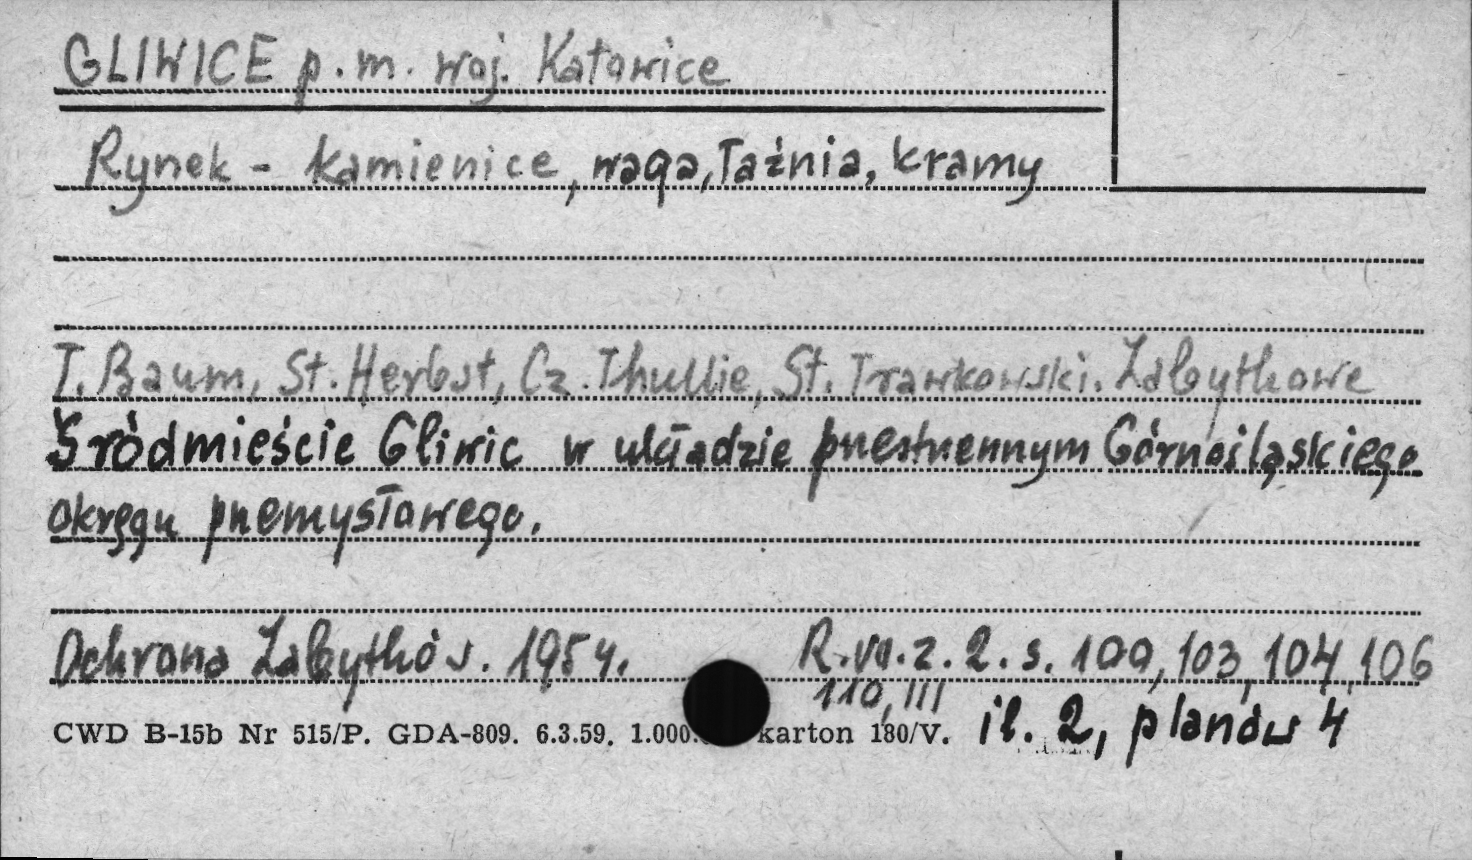 GLIWICE p.m. woj. Katowice
Rynek - kamienice, waga, łaźnia, kramy
T. Baum, St. Herbst, Cz. Thullie, St. Trawkowski. Zabytkowe
Śródmieście Gliwic w układzie przestrzennym Górnośląskiego
okręgu przemysłowego.
Ochrona Zabytków. 1954. R. VII. z. 2. s. 100, 103, 104, 106
110, 111
il. 2, planów 4
CWD B-15b Nr 515/P. GDA-809. 6.3.59. 1.000. karton 180/V.